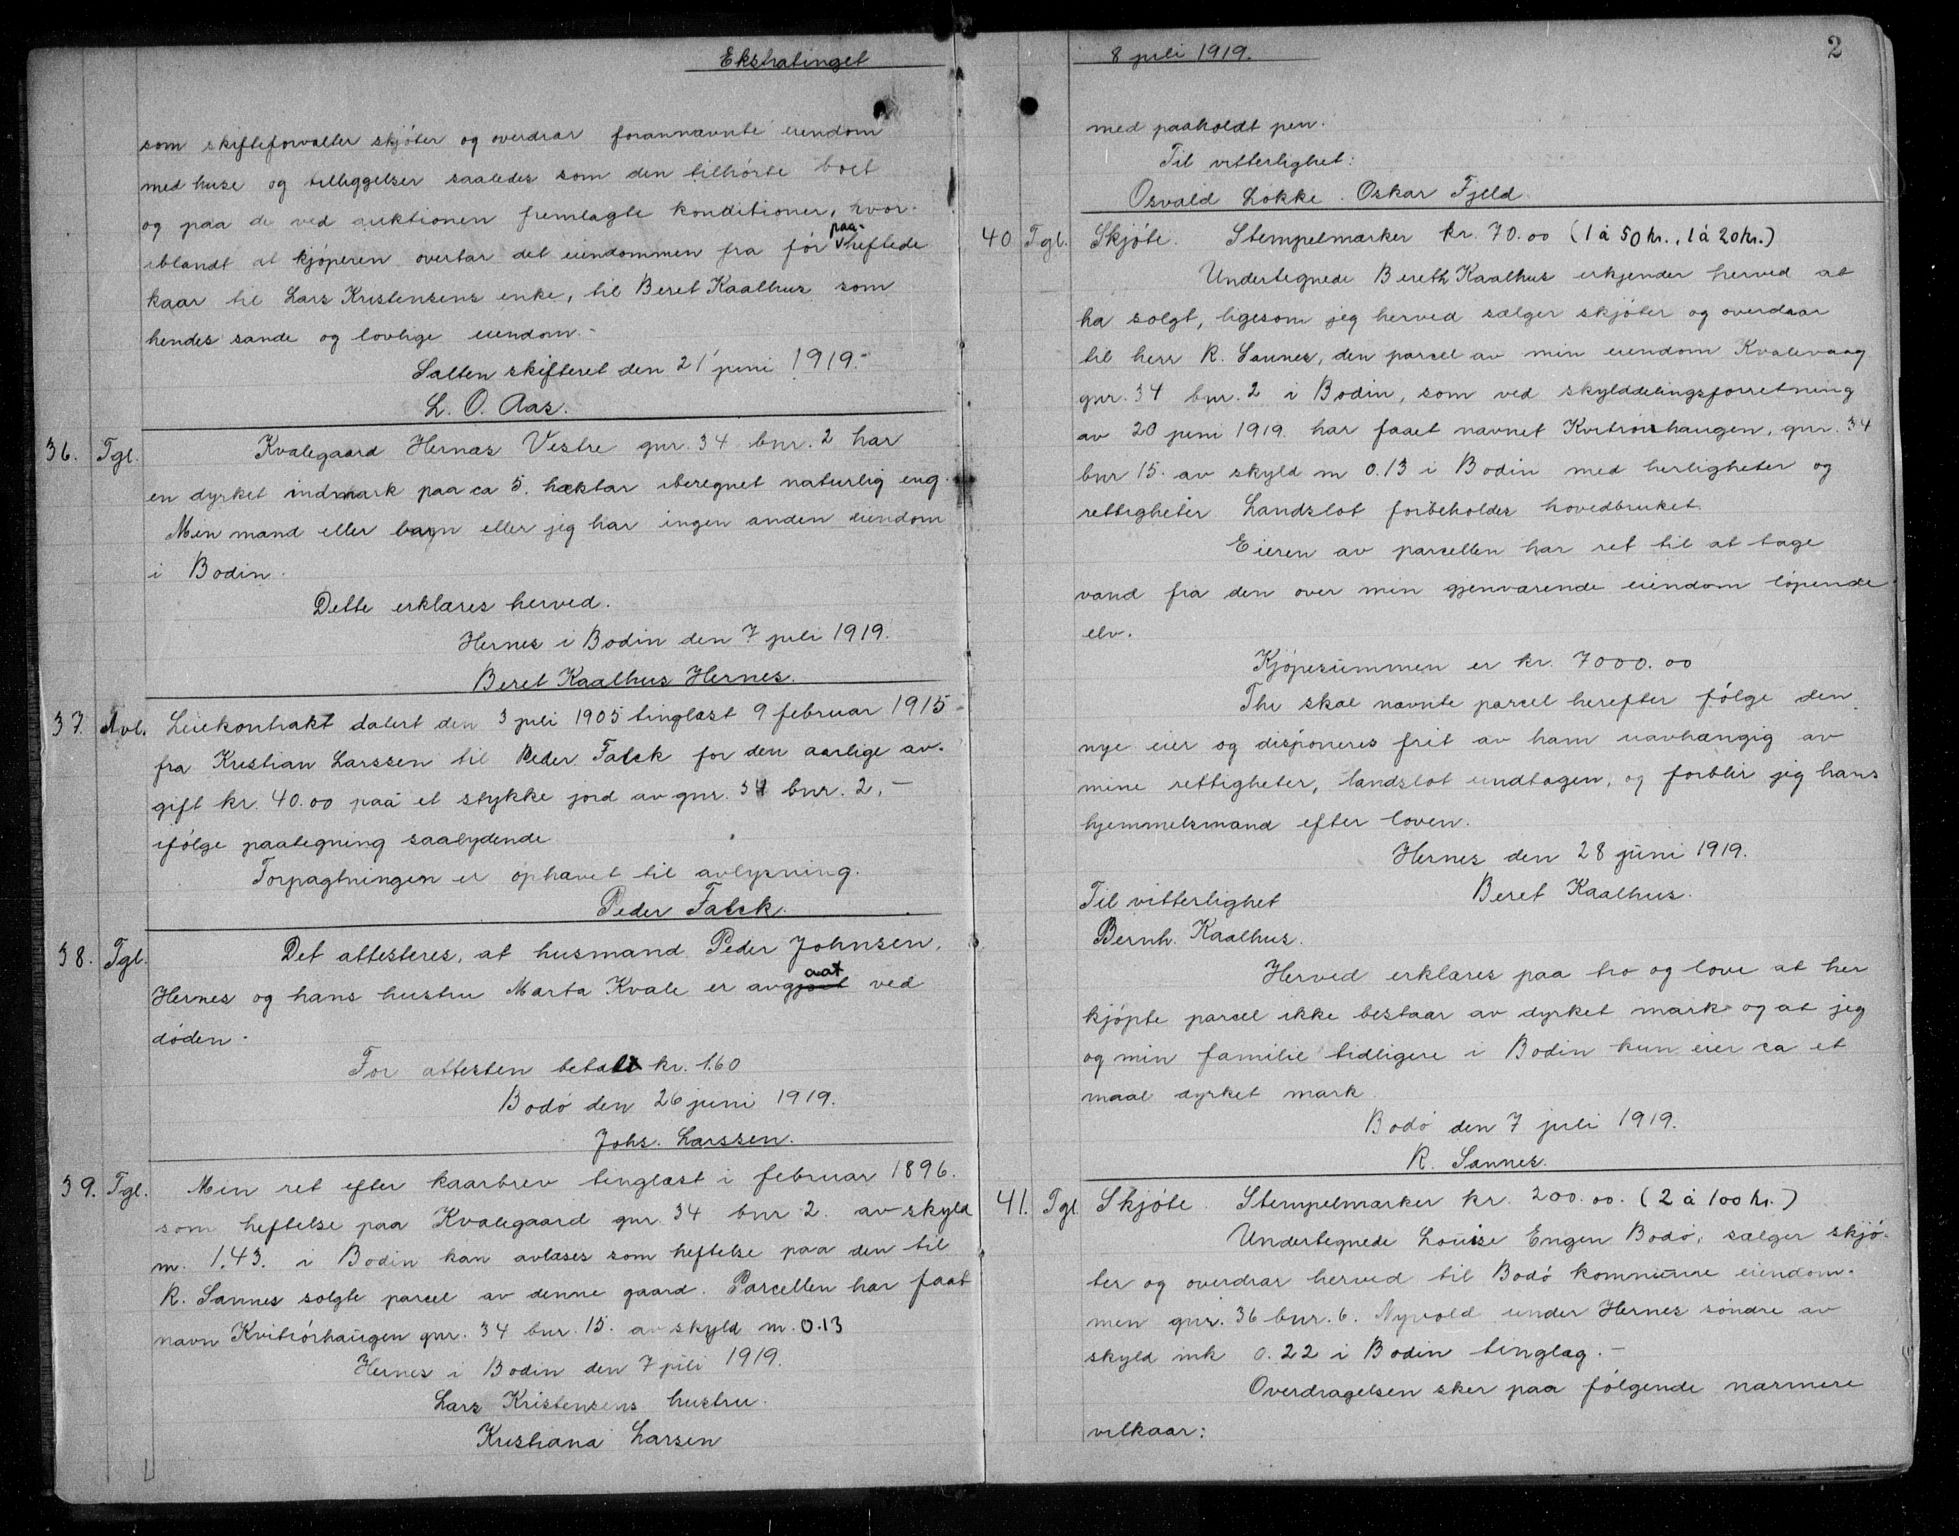 Ekstratinget
som skifteforvalter skjøter og overdrar forannævnte eiendom
med huse og tilliggelser saaledes som den tilhørte boet
og paa de ved auktionen fremlagte konditioner, hvor-
iblandt at kjøperen overtar det eiendommen fra før paa-heftede
kaar til Lars Kristensens enke, til Beret Kaalhus som
hendes sande og lovlige eiendom.-
Salten skifteret den 21 juni 1919.-
L. O. Aas.
36. Tgl. Kvalegaard Hernæs Vestre gnr. 34 bnr. 2 har
en dyrket indmark paa ca 5. hektar iberegnet naturlig eng.
Min mand eller barn eller jeg har ingen anden eiendom
i Bodin.
Dette erklæres herved.
Hernes i Bodin den 7 juli 1919.
Beret Kaalhus Hernes.
37. Avl. Leiekontrakt datert den 3 juli 1905 tinglæst 9 februar 1915
fra Kristian Larssen til Peder Falck for den aarlige av-
gift kr. 40.00 paa et stykke jord av gnr. 34 bnr. 2,-
ifølge paategning saalydende
Forpagtningen er ophævet til avlysning.
Peder Falck.
38. Tgl. Det attesteres, at husmand Peder Johnsen,
Hernes og hans hustru Marta Kvale er avgaat ved
døden.
For attesten betalt kr. 1.60
Bodø den 26 juni 1919.
Johs. Larssen.
39. Tgl. Min ret efter kaarbrev tinglæst i februar 1896.
som heftelse paa Kvalegaard gnr. 34 bnr 2. av skyld
m. 1.43. i Bodin kan avlæses som heftelse paa den til
R. Sannes solgte parcel av denne gaard. Parcellen har faat
navn Kvitrórhaugen gnr. 34 bnr. 15. av skyld m. 0.13
Hernes i Bodin den 7 juli 1919.
Lars Kristensens hustru.
Kristiana Larsen
8 juli 1919.
2
med paaholdt pen.
Til vitterlighet:
Osvald Løkke. Oskar Fjeld.
40 Tgl. Skjøte. Stempelmærker kr. 70.00 (1 à 50 kr., 1 à 20 kr.)
Undertegnede Bereth Kaalhus erkjender herved at
ha solgt, ligesom jeg herved sælger skjøter og overdrar
til herr R. Sannes, den parcel av min eiendom Kvalevaag
gnr. 34 bnr. 2 i Bodin, som ved skylddelingsforretning
av 20 juni 1919. har faaet navnet Kvitrórshaugen, gnr. 34
bnr 15. av skyld m 0.13 i Bodin med herligheter og
rettigheter Landslot forbeholdes hovedbruket.
Eieren av parcellen har ret til at tage
vand fra den over min gjenværende eiendom løpende
elv.
Kjøpesummen er kr. 7000.00
Thi skal nævnte parcel herefter følge den
nye eier og disponeres frit av ham uavhængig av
mine rettigheter, landslot undtagen, og forblir jeg hans
hjemmelsmand efter loven.
Hernes den 28 juni 1919.
Til vitterlighet Beret Kaalhus.
Bernh. Kaalhus.
Herved erklæres paa tro og love at her
kjøpte parcel ikke bestaar av dyrket mark og at jeg
og min familie tidligere i Bodin kun eier ca et
maal dyrket mark.
Bodø den 7 juli 1919.
R. Sannes.
41. Tgl Skjøte. Stempelmærker kr. 200.00. (2 à 100 kr.)
Undertegnede Louise Engen Bodø, sælger skjø-
ter og overdrar herved til Bodø kommune eiendom-
men gnr. 36 bnr. 6. Nyvold under Hernes søndre av
skyld mk 0.22 i Bodin tinglag.-
Overdragelsen sker paa følgende nærmere
vilkaar: